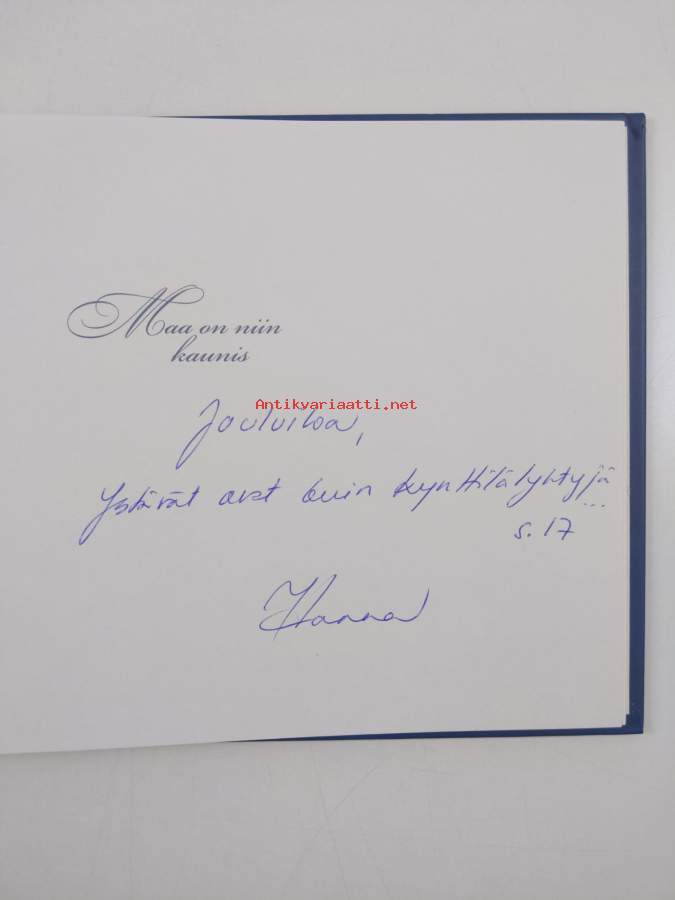 Maa on niin
kaunis
Antikvariaatti.net
Jouluiloa,
Ystävät ovat kuin kynttilälyhtyjä
...
s. 17
Hanna